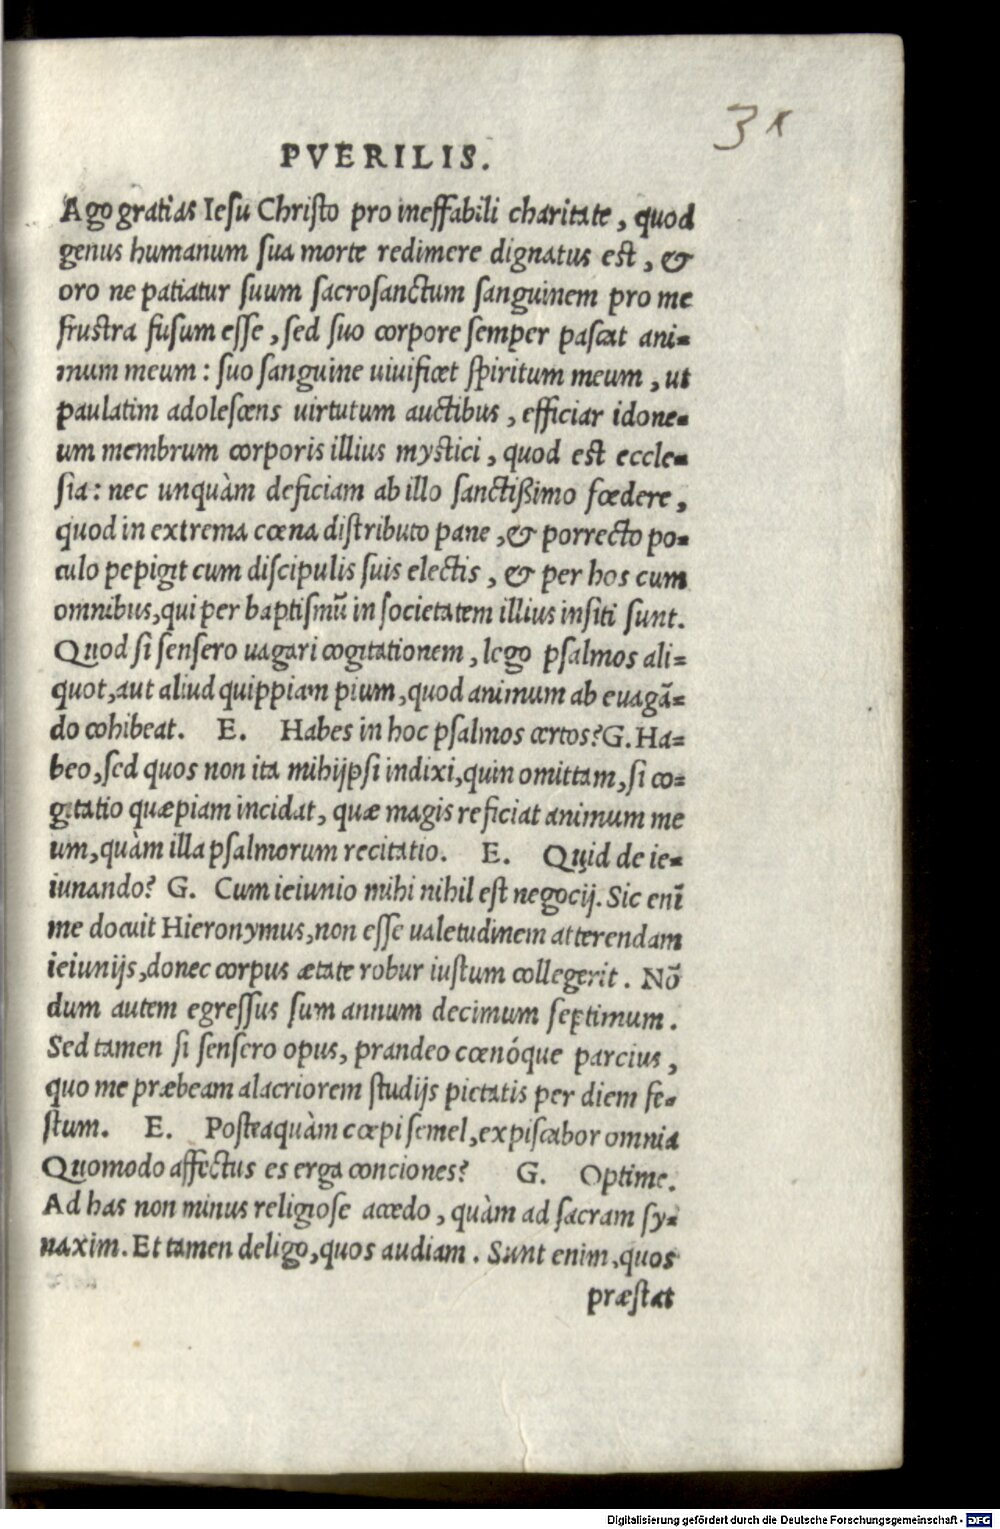 31
PVERILIS.
Ago gratias Iesu Christo pro ineffabili charitate, quod
genus humanum sua morte redimere dignatus est, &
oro ne patiatur suum sacrosanctum sanguinem pro me
frustra fusum esse, sed suo corpore semper pascat ani-
mum meum: suo sanguine uiuificet spiritum meum, ut
paulatim adolescens uirtutum auctibus, efficiar idone-
um membrum corporis illius mystici, quod est eccle-
sia: nec unquàm deficiam ab illo sanctißimo fœdere,
quod in extrema cœna distributo pane, & porrecto po-
culo pepigit cum discipulis suis electis, & per hos cum
omnibus, qui per baptismũ in societatem illius insiti sunt.
Quod si sensero uagari cogitationem, lego psalmos ali-
quot, aut aliud quippiam pium, quod animum ab euagã-
do cohibeat. E. Habes in hoc psalmos certos? G. Ha-
beo, sed quos non ita mihijpsi indixi, quin omittam, si co-
gitatio quæpiam incidat, quæ magis reficiat animum me
um, quàm illa psalmorum recitatio. E. Quid de ie-
iunando? G. Cum ieiunio mihi nihil est negocij. Sic enĩ
me docuit Hieronymus, non esse ualetudinem atterendam
ieiunijs, donec corpus ætate robur iustum collegerit. Nõ
dum autem egressus sum annum decimum septimum.
Sed tamen si sensero opus, prandeo cœnóque parcius,
quo me præbeam alacriorem studijs pietatis per diem fe-
stum. E. Posteaquàm cœpi semel, expiscabor omnia
Quomodo affectus es erga conciones? G. Optime.
Ad has non minus religiose accedo, quàm ad sacram sy-
naxim. Et tamen deligo, quos audiam. Sunt enim, quos
præstat
Digitalisierung gefördert durch die Deutsche Forschungsgemeinschaft - DFG